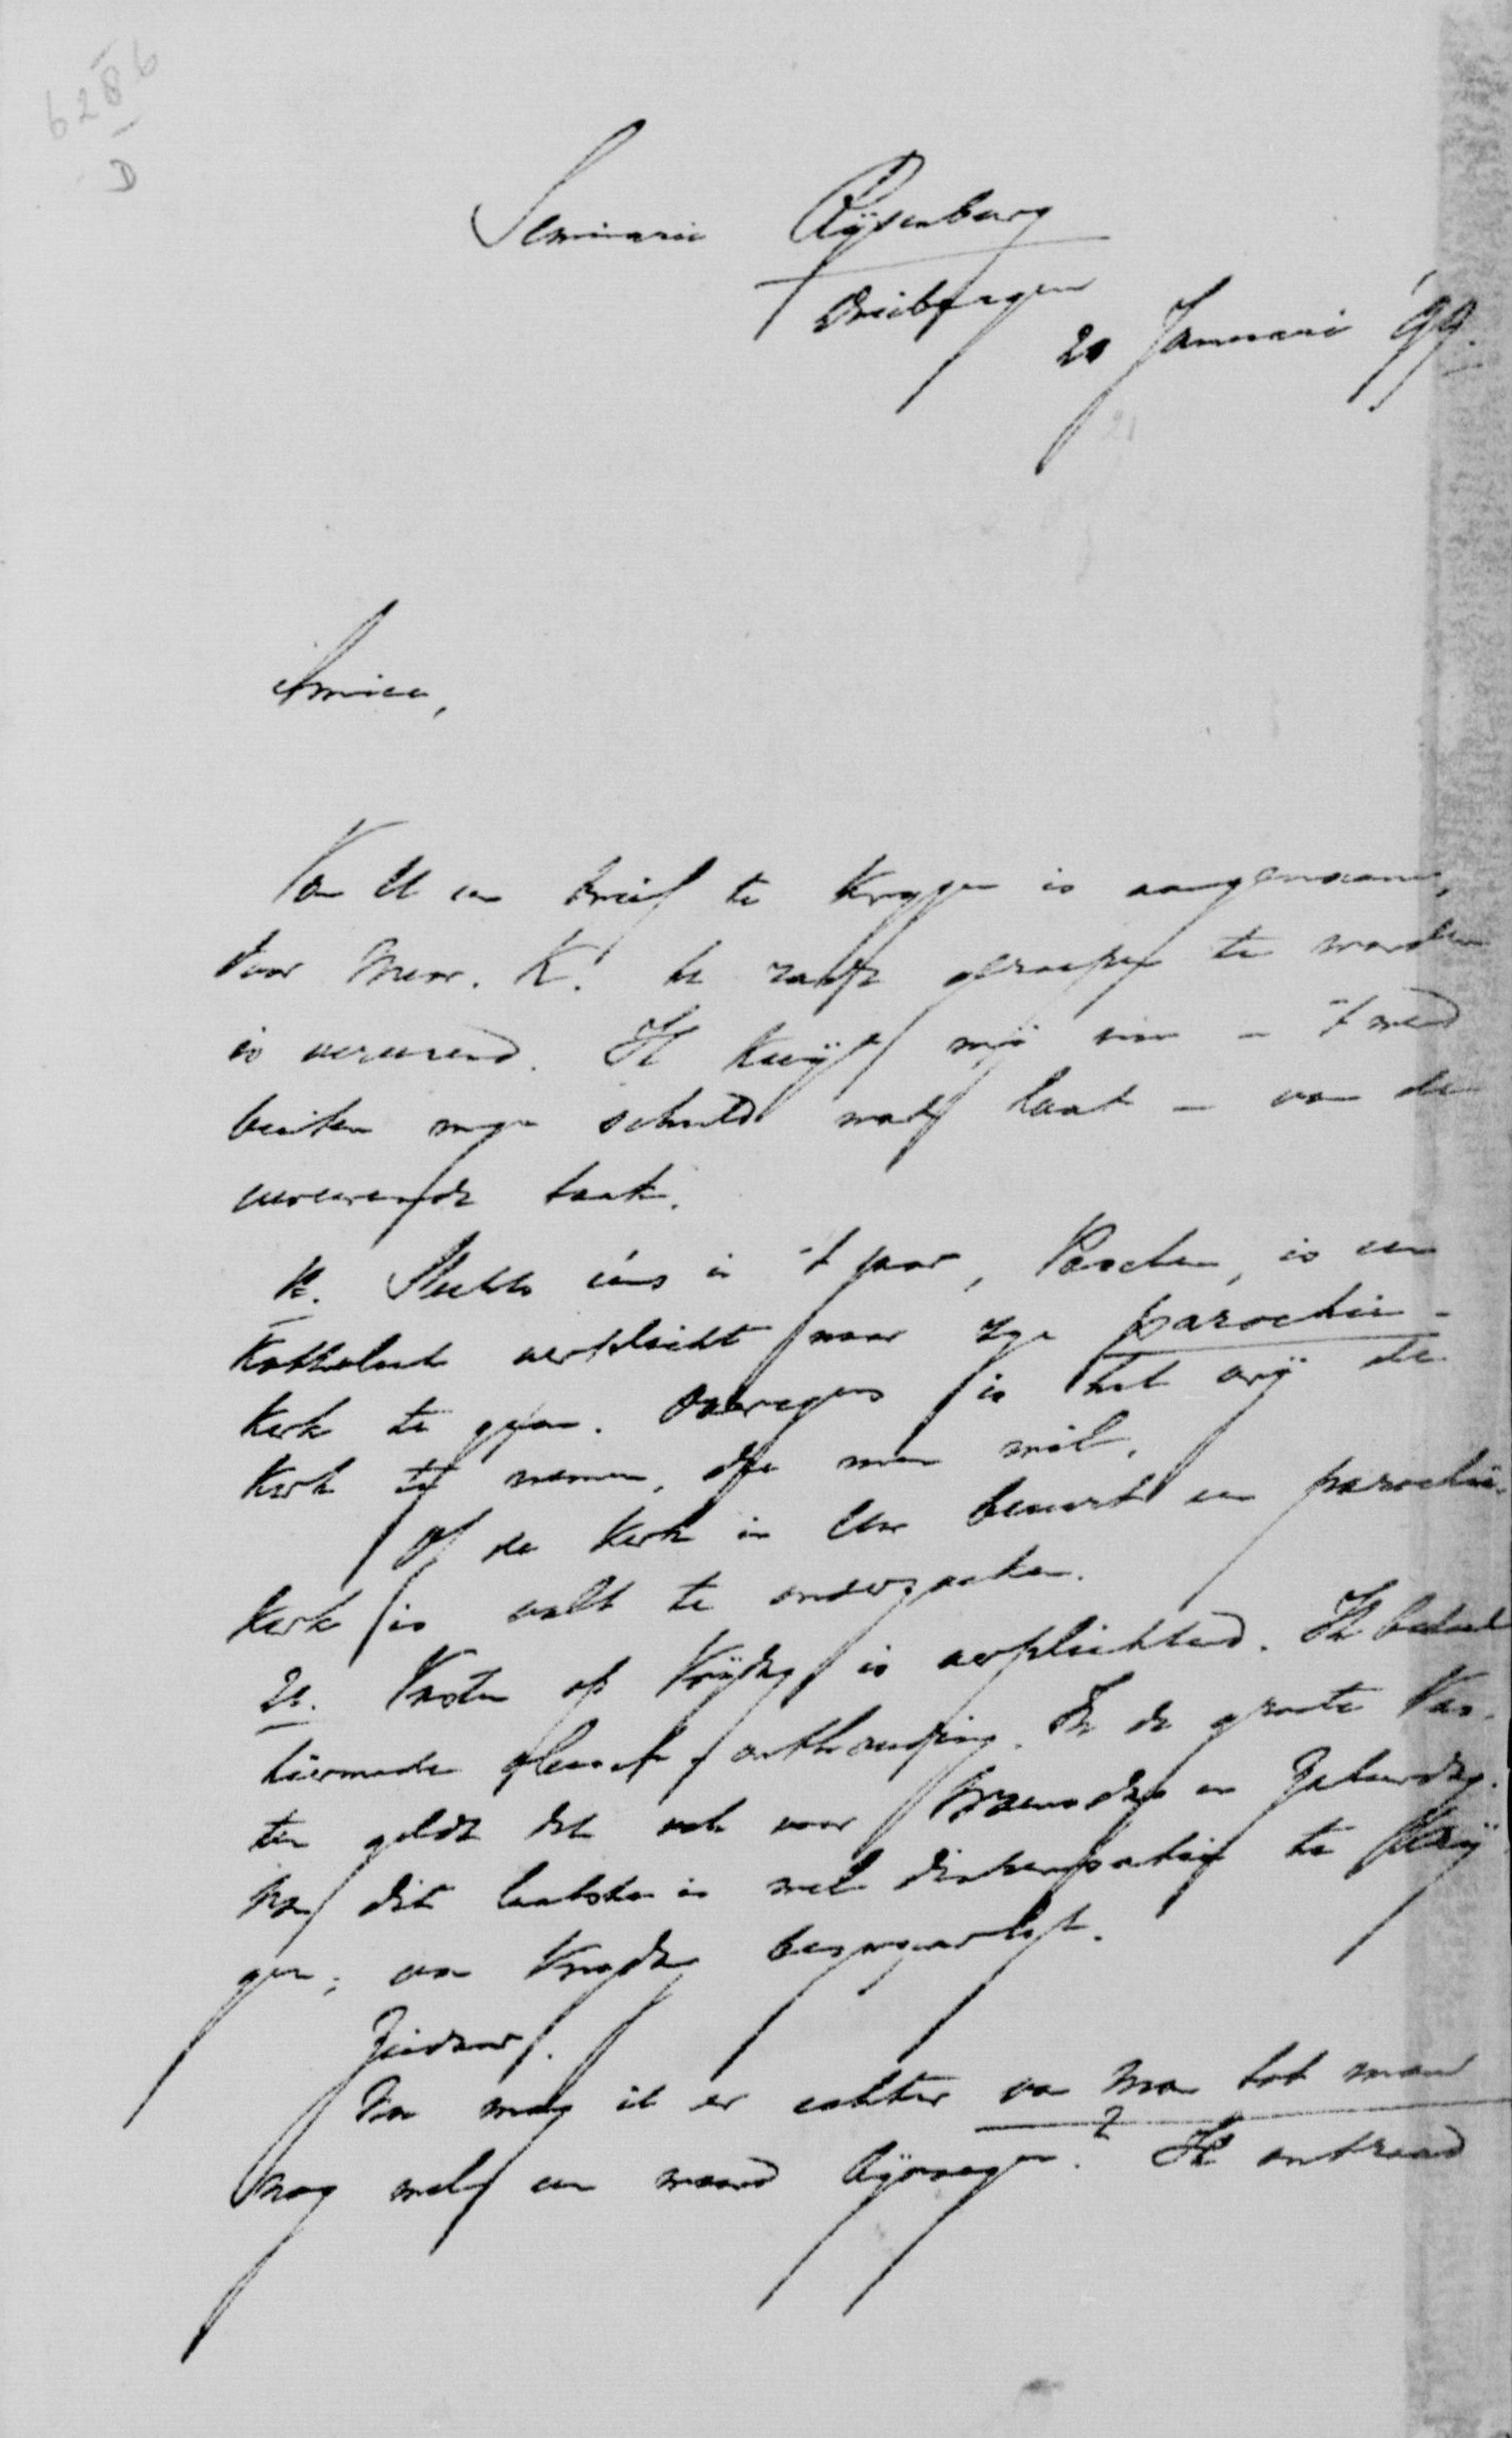 6286
D
Seminarie Rijsenburg
Driebergen
20 Januari '99.
21
Amice,
Van U een brief te krijgen is aangenaam,
door Mevr. K. te raad geroepen te worden
is vereerend. Ik kwijt mij dan - 't werd
buiten mijn schuld wat laat - van de
vereerende taak.
1e. Slechts ééns in 't jaar, Paschen, is een
Katholiek verplicht naar zijn parochie-
kerk te gaan. Overigens is het vrij de
kerk te nemen, die men wil.
Of de kerk in Uw buurt een parochie-
kerk is valt te onderzoeken.
2e. Vasten op Vrijdag is verplichtend. Ik bedoel
hiermede vleesch-onthouding. In de groote Vas-
ten geldt dit ook voor Woensdag en Zaturdag.
Van dit laatste is wel dispensatie te krij-
gen; van Vrijdag bezwaarlijk.
Ziedaar.
Nu mag ik er echter van man tot man
nog wel een woord bijvoegen? Ik ontraad